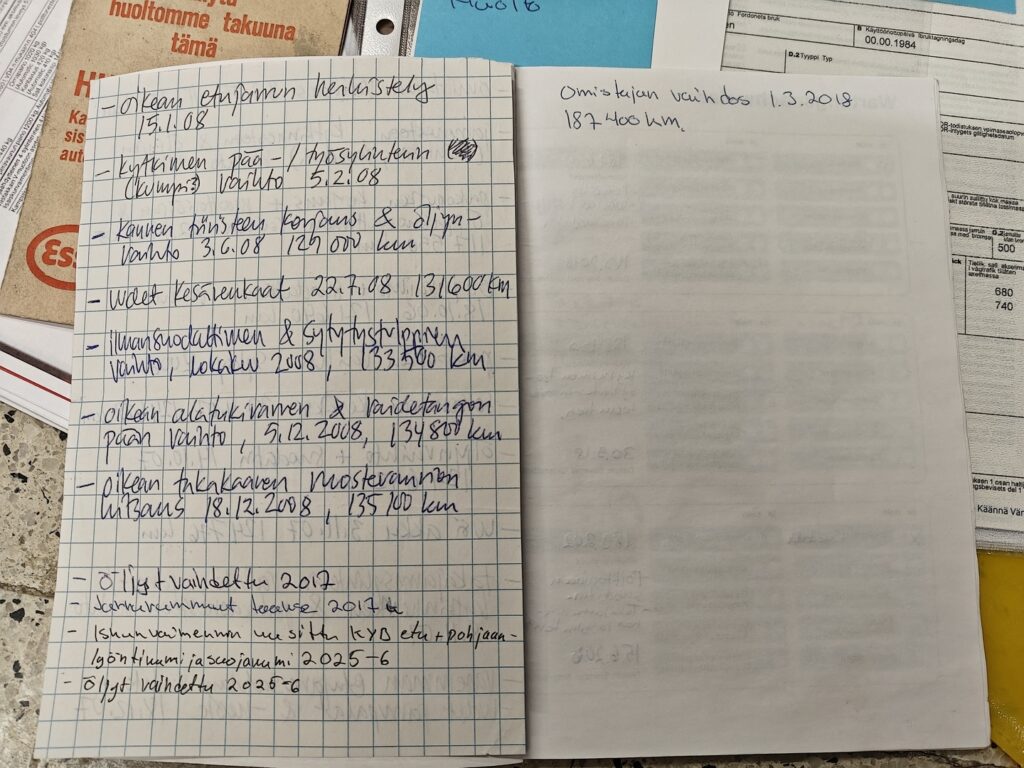 huoltomme takuuna
tämä
Ka
sis
aut
Ess
- oikean etujarrun herkistely
15.1.08
- kytkimen pää-/työsylinterin
(kumpi?) vaihto 5.2.08
- kannen tiivisteen korjaus & öljyn-
vaihto 3.6.08 129 000 km
- uudet kesärenkaat 22.7.08 131600 km
- ilmansuodattimen & sytytystulppien
vaihto, lokakuu 2008, 133 500 km
- oikean alatukivarren & raidetangon
pään vaihto, 5.12.2008, 134 800 km
- oikean takakaaren ruostevaurion
hitsaus 18.12.2008, 135 100 km
- Öljyt vaihdettu 2017
- Jarrurummut taakse 2017
- Iskunvaimennin uusittu KYB etu + pohjaan-
lyöntikumi ja suojakumi 2025-6
- Öljyt vaihdettu 2025-6
Omistajan vaihdos 1.3.2018
187 400 km.
Fordonets bruk
B Käyttöönottopäivä Ibruktagningsdag
00.00.1984
D.2 Tyyppi Typ
500
680
740
Käännä Vän